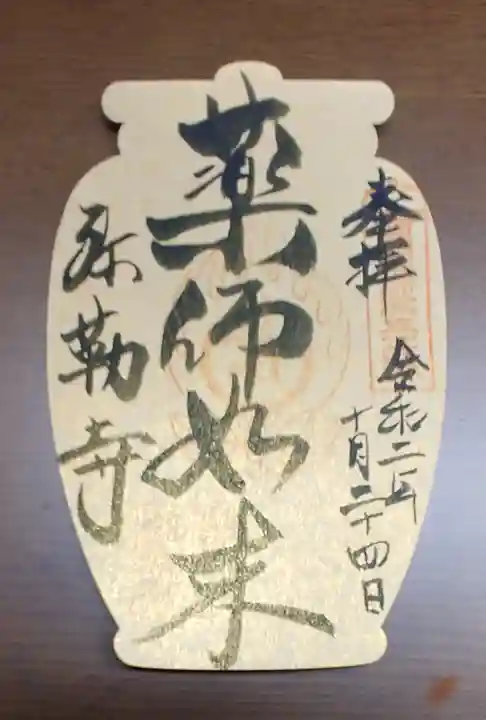 奉拝
令和二年
十月二十四日
薬師如来
弥勒寺